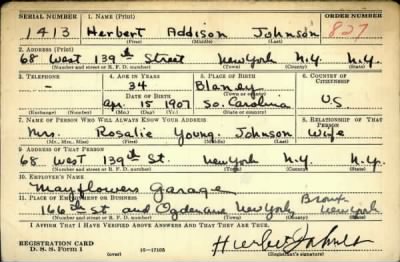 SERIAL NUMBER 1. NAME (Print) ORDER NUMBER
1413 Herbert Addison Johnson 827
(First) (Middle) (Last)
2. ADDRESS (Print)
68 West 139th Street New York N.Y. N.Y.
(Number and street or R. F. D. number) (Town) (County) (State)
3. TELEPHONE 4. AGE IN YEARS 5. PLACE OF BIRTH 6. COUNTRY OF CITIZENSHIP
- 34 Blaney
DATE OF BIRTH
Apr. 15 1907 So. Carolina U.S.
(Exchange) (Number) (Mo.) (Day) (Yr.) (State or country)
7. NAME OF PERSON WHO WILL ALWAYS KNOW YOUR ADDRESS 8. RELATIONSHIP OF THAT PERSON
Mrs. Rosalie Young Johnson Wife
(Mr., Mrs., Miss) (First) (Middle) (Last)
9. ADDRESS OF THAT PERSON
68 West 139th St. New York N.Y. N.Y.
(Number and street or R. F. D. number) (Town) (County) (State)
10. EMPLOYER'S NAME
Mayflowers Garage
11. PLACE OF EMPLOYMENT OR BUSINESS
166th St and Ogden ave New York Bronx New York
(Number and street or R. F. D. number) (Town) (County) (State)
I AFFIRM THAT I HAVE VERIFIED ABOVE ANSWERS AND THAT THEY ARE TRUE.
REGISTRATION CARD
D. S. S. Form 1 (over) 16-17105 (Registrant's signature)